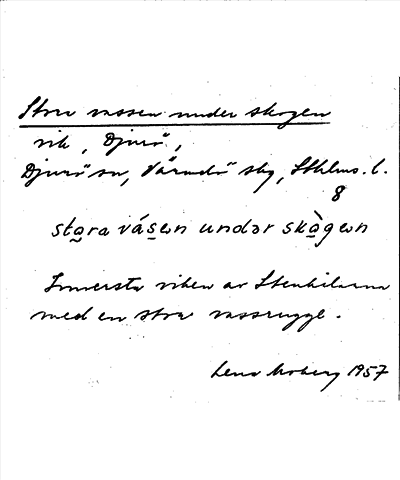 Stora vassen under skogen
vik, Djurö,
Djurö sn, Värmdö skg, Sthlms. l.
8
stɑ̱ra vás̱ən undər skɑ̱̀gən
Innersta viken av Stenkilarna
med en stor vassrugge.
Lena Moberg 1957